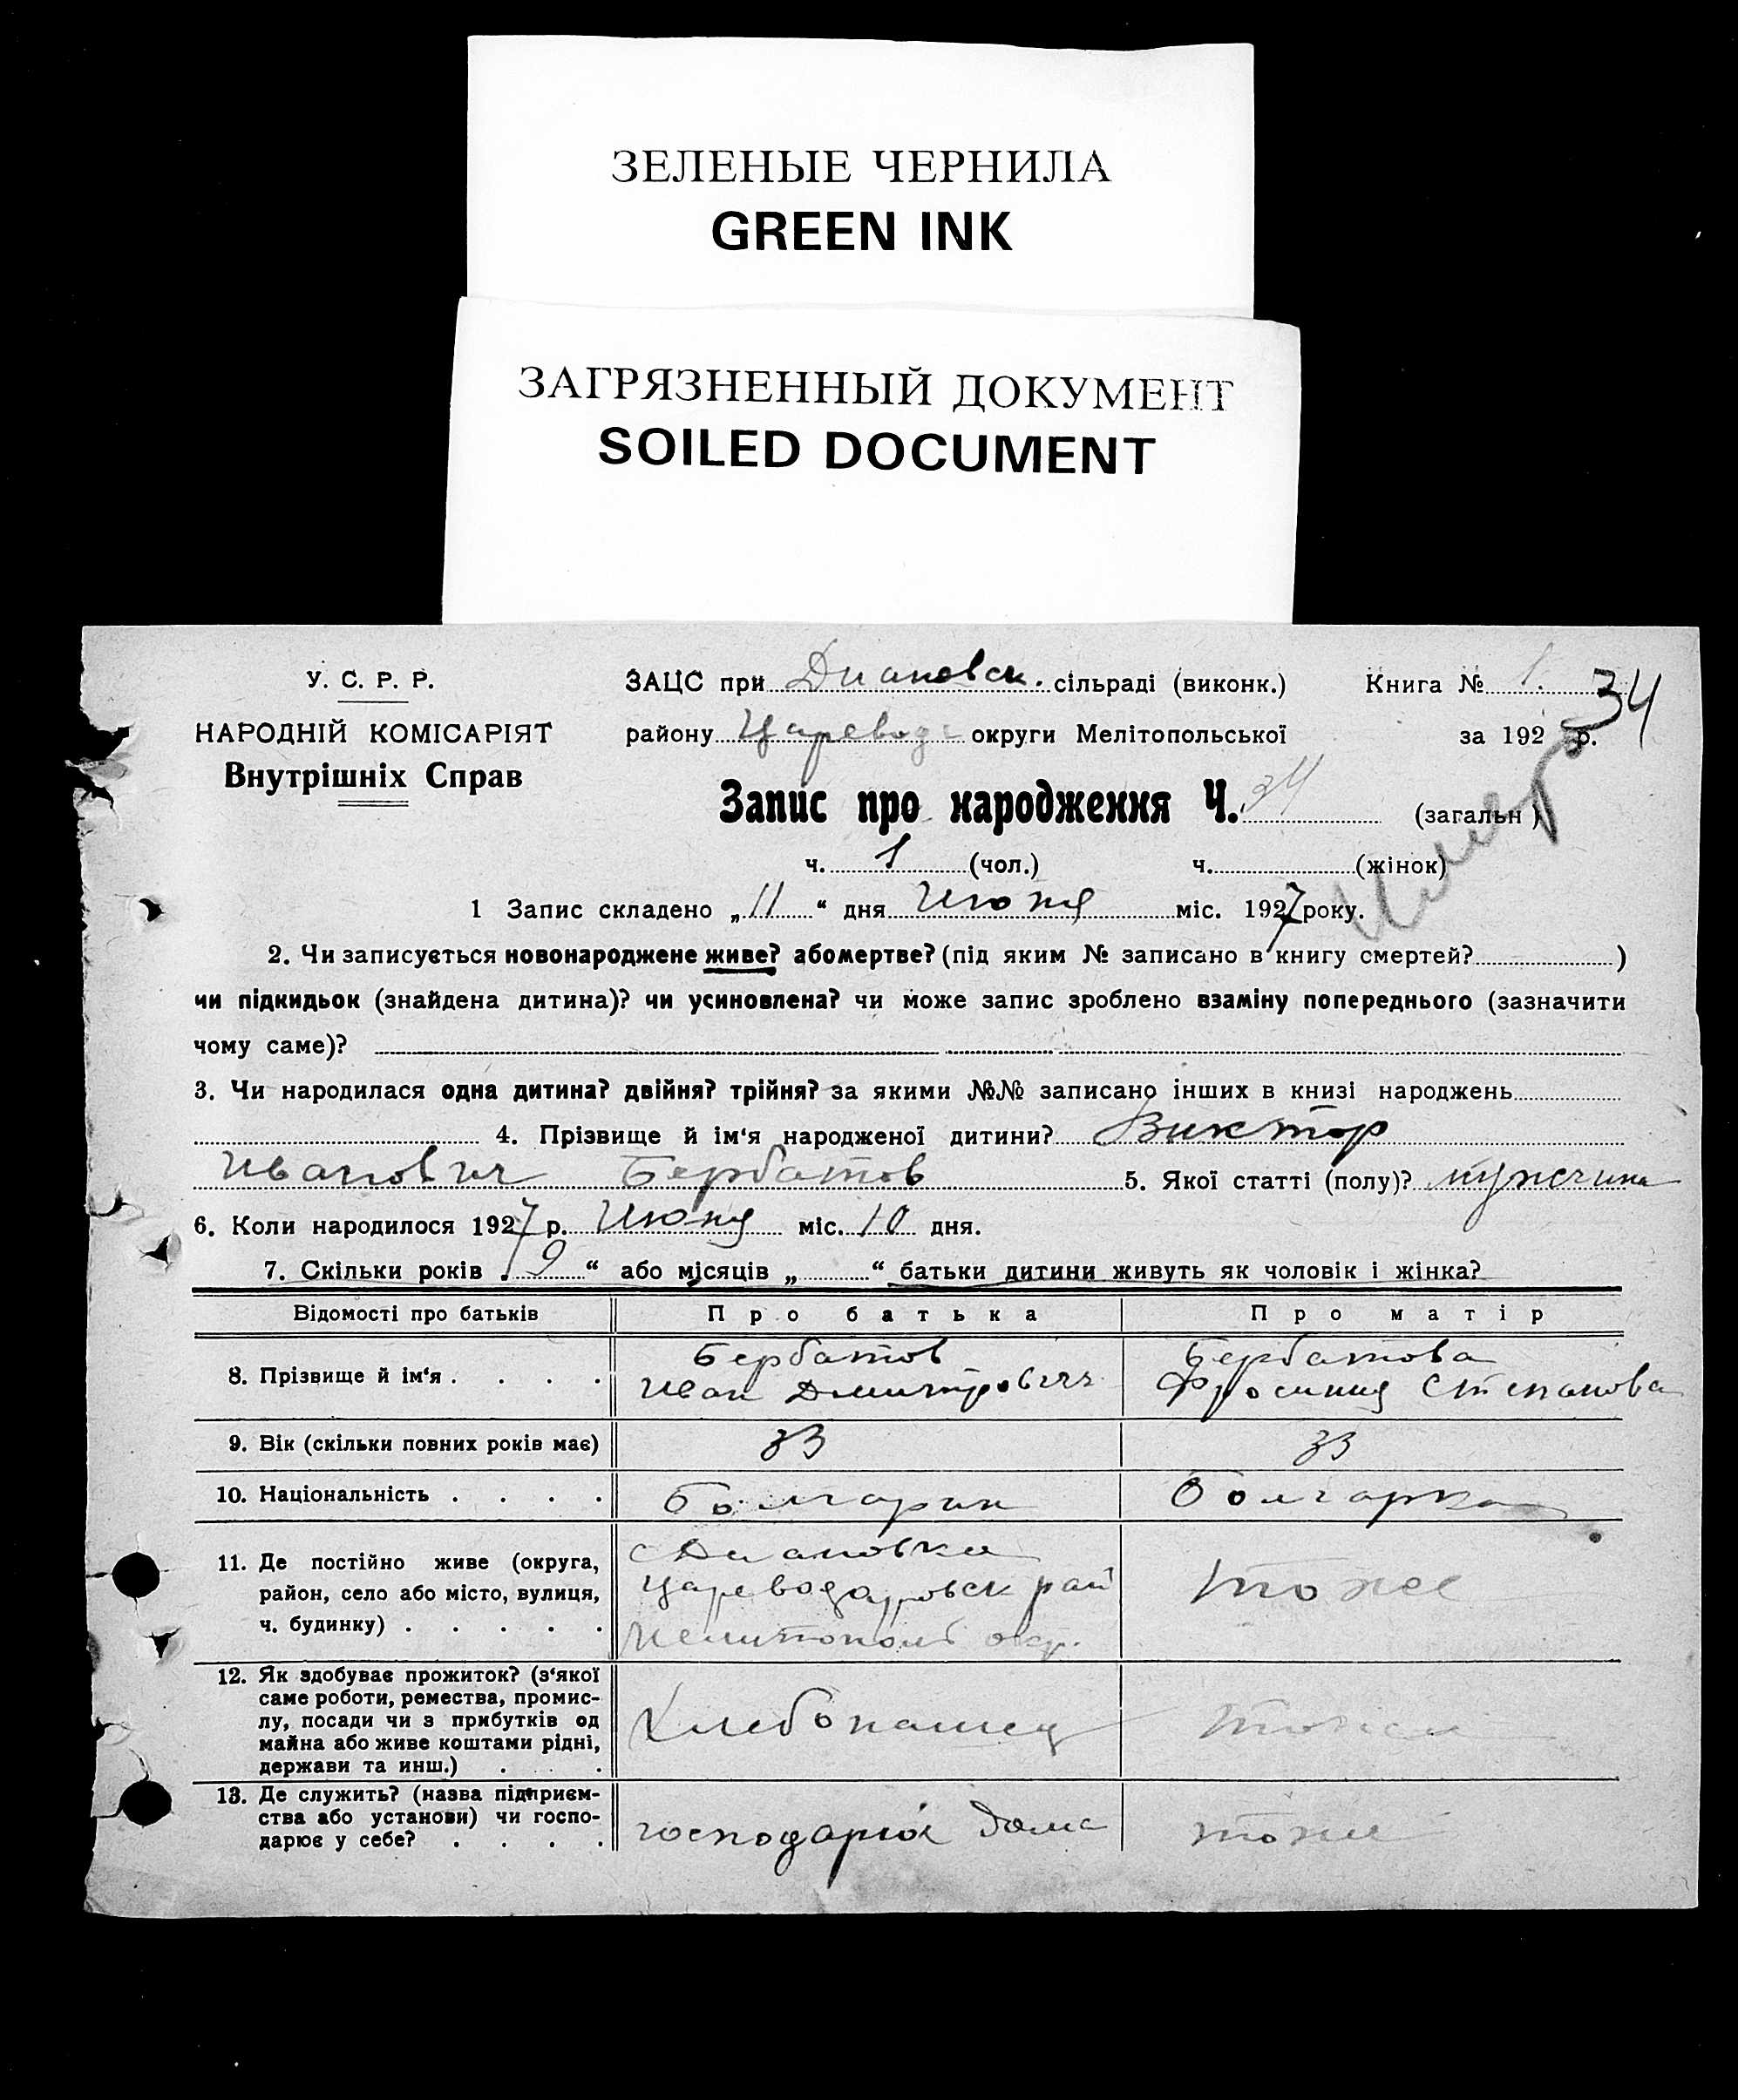 ЗЕЛЕНЫЕ ЧЕРНИЛА
GREEN INK
ЗАГРЯЗНЕННЫЙ ДОКУМЕНТ
SOILED DOCUMENT
У. С. Р. Р.
НАРОДНІЙ КОМІСАРІЯТ
Внутрішніх Справ
ЗАЦС при Диановск. сільраді (виконк.) Книга № 1. 34
району Царевод округи Мелітопольської за 192 р.
Запис про народження Ч. 34 (загальн.)
ч. 1 (чол.) ч. (жінок)
1 Запис складено „ 11 “ дня Июня міс. 1927 року.
2. Чи записується новонароджене живе? або мертве? (під яким № записано в книгу смертей? )
чи підкидьок (знайдена дитина)? чи усиновлена? чи може запис зроблено взаміну попереднього (зазначити
чому саме)?
3. Чи народилася одна дитина? двійня? трійня? за якими №№ записано інших в книзі народжень
4. Прізвище й ім‘я народженої дитини? Виктор
Иванович Бербатов 5. Якої статті (полу)? мужчина
6. Коли народилося 1927 р. Июня міс. 10 дня.
7. Скільки років „ 9 “ або місяців „ “ батьки дитини живуть як чоловік і жінка?
Відомості про батьків Про батька Про матір
8. Прізвище й ім‘я . . . . Бербатов Иван Дмитрович Бербатова Фросиния Степанова
9. Вік (скільки повних років має) 33 33
10. Національність . . . . Болгарин Болгарка
11. Де постійно живе (округа, район, село або місто, вулиця, ч. будинку) . . . . . с Диановка Цареводаровск рай Мелитополь окр. тоже
12. Як здобуває прожиток? (з‘якої саме роботи, ремества, промислу, посади чи з прибутків од майна або живе коштами рідні, держави та инш.) . . Хлебопашец тоже
13. Де служить? (назва підприємства або установи) чи господарює у себе? . . . . господарює дома тоже